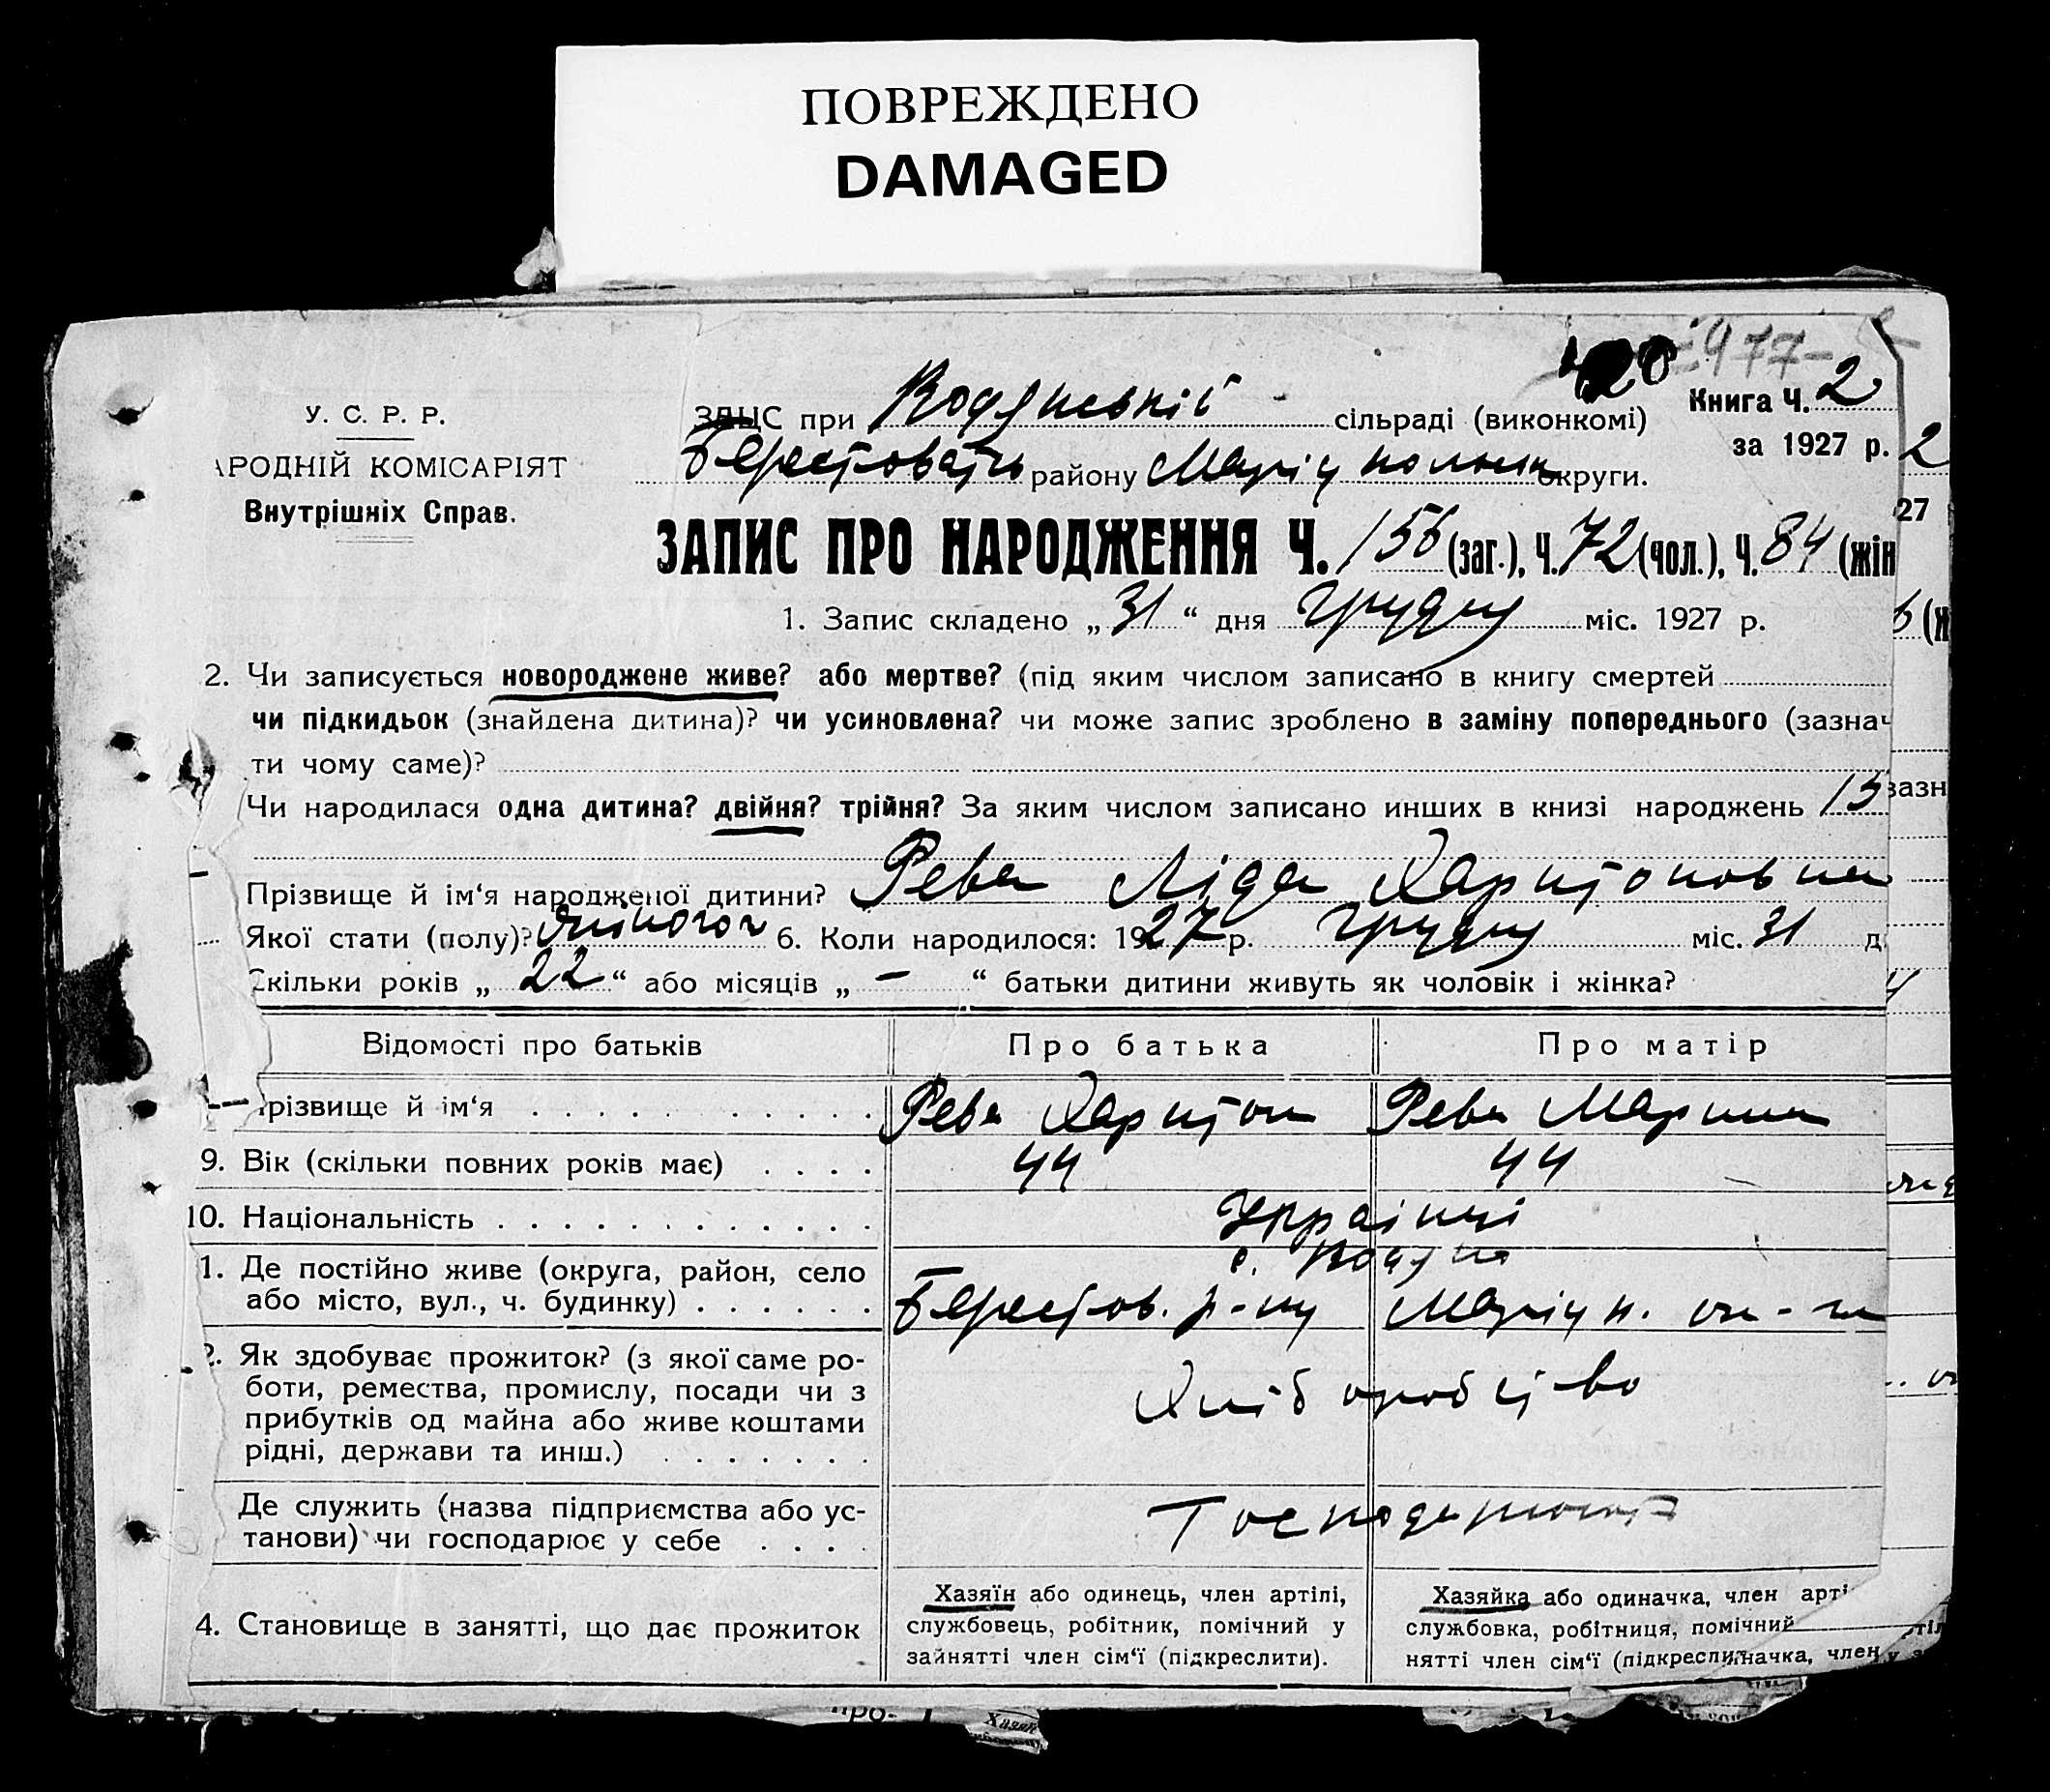 ПОВРЕЖДЕНО
DAMAGED
977-
Книга Ч. 2
за 1927 р. 2
У. С. Р. Р.
АРОДНІЙ КОМІСАРІЯТ
Внутрішніх Справ.
ЗАЦС при Водянській сільраді (виконкомі)
Берестоватс району Маріупольськ округи.
ЗАПИС ПРО НАРОДЖЕННЯ Ч. 156 (заг.), Ч. 72 (чол.), Ч. 84 (жін
1. Запис складено „ 31 “ дня Грудну міс. 1927 р.
2. Чи записується новороджене живе? або мертве? (під яким числом записано в книгу смертей
чи підкидьок (знайдена дитина)? чи усиновлена? чи може запис зроблено в заміну попереднього (зазнач
ти чому саме)?
Чи народилася одна дитина? двійня? трійня? За яким числом записано инших в книзі народжень 15
Прізвище й ім‘я народженої дитини? Рева Ліда Харитоновна
Якої стати (полу)? жіночої 6. Коли народилося: 1927 р. Грудну міс. 31 д
Скільки років „ 22 “ або місяців „ — “ батьки дитини живуть як чоловік і жінка?
Відомості про батьків Про батька Про матір
різвище й ім‘я Рева Харитон Рева Марина
9. Вік (скільки повних років має) 44 44
10. Національність Українці
с. Водяна
1. Де постійно живе (округа, район, село
або місто, вул., ч. будинку) Берестов. р-ну Маріуп. ок-ги
2. Як здобуває прожиток? (з якої саме ро-
боти, ремества, промислу, посади чи з
прибутків од майна або живе коштами
рідні, держави та инш.) Хліборобство
Де служить (назва підприємства або ус-
танови) чи господарює у себе Господарюют
4. Становище в занятті, що дає прожиток
Хазяїн або одинець, член артілі,
службовець, робітник, помічний у
зайнятті член сім‘ї (підкреслити).
Хазяйка або одиначка, член арті
службовка, робітниця, помічний
нятті член сім‘ї (підкресли начка, член